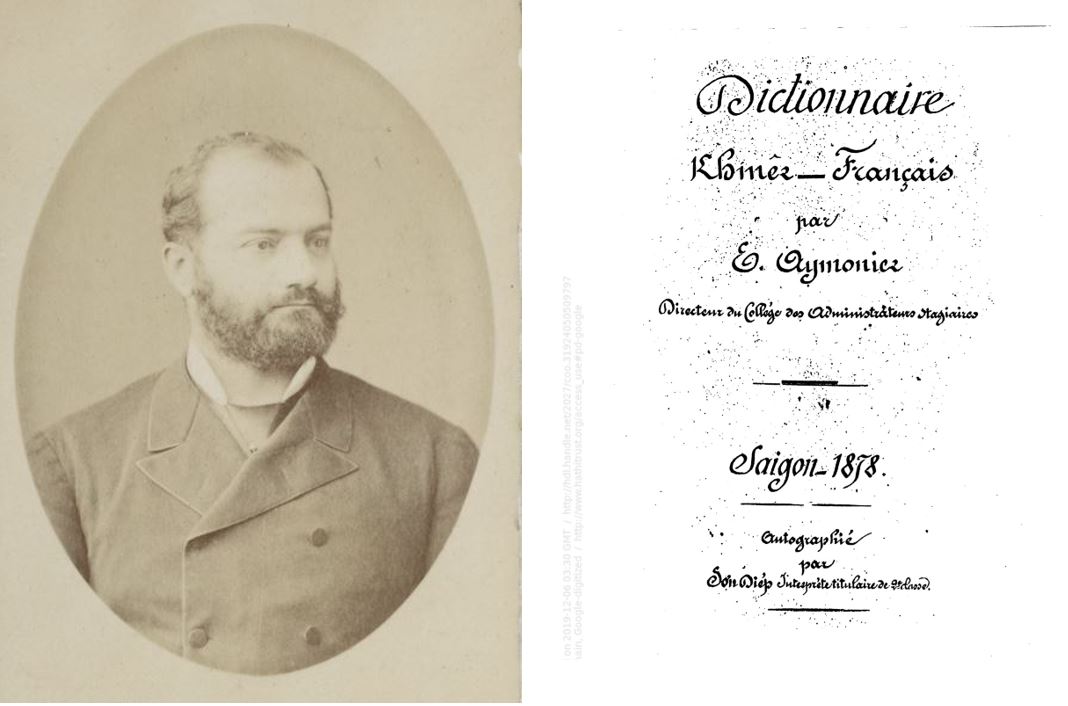 Dictionnaire
Khmêr — Français
par
E. Aymonier
Directeur du Collège des Administrateurs stagiaires
Saigon_1878.
Autographié
par
Son Diêp Interprète titulaire de 2e classe.
on 2019-12-06 03:30 GMT / http://hdl.handle.net/2027/coo.31924050509797
ain, Google-digitized / http://www.hathitrust.org/access_use#pd-google